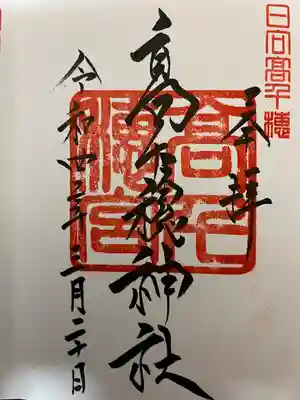 日向髙千穂
奉拝
高千穂神社
高千穂宮
令和四年三月二十日